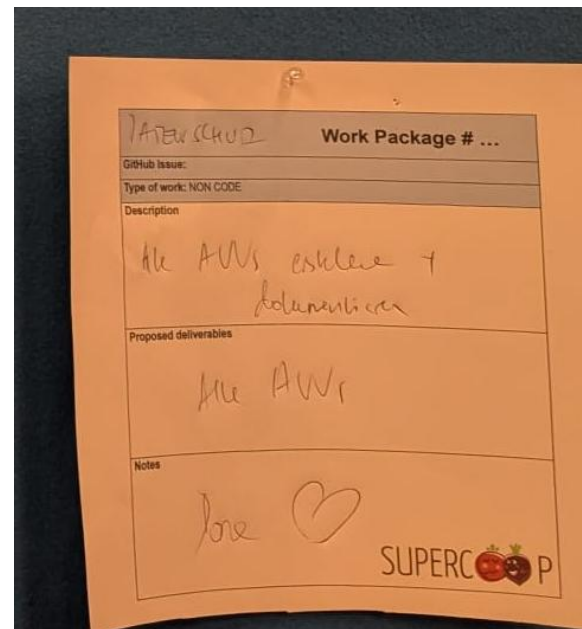 DATENSCHUTZ
Work Package # ...
GitHub Issue:
Type of work: NON CODE
Description
Alle AVVs
dokumentieren
Proposed deliverables
Alle AVVs
Notes
love ♡
SUPERCOOP